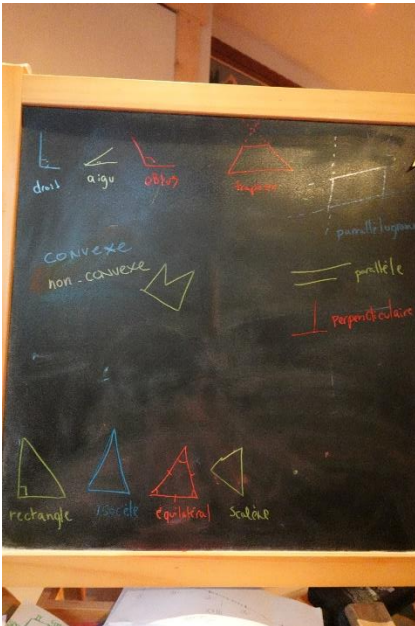 droit aigu obtus trapèze parallélogramme
convexe
non-convexe
parallèle
perpendiculaire
rectangle isocèle équilatéral scalène